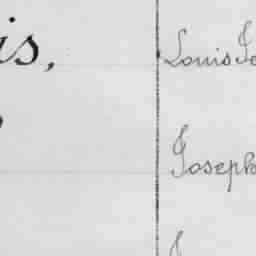 is,
Louis Jo
Joseph